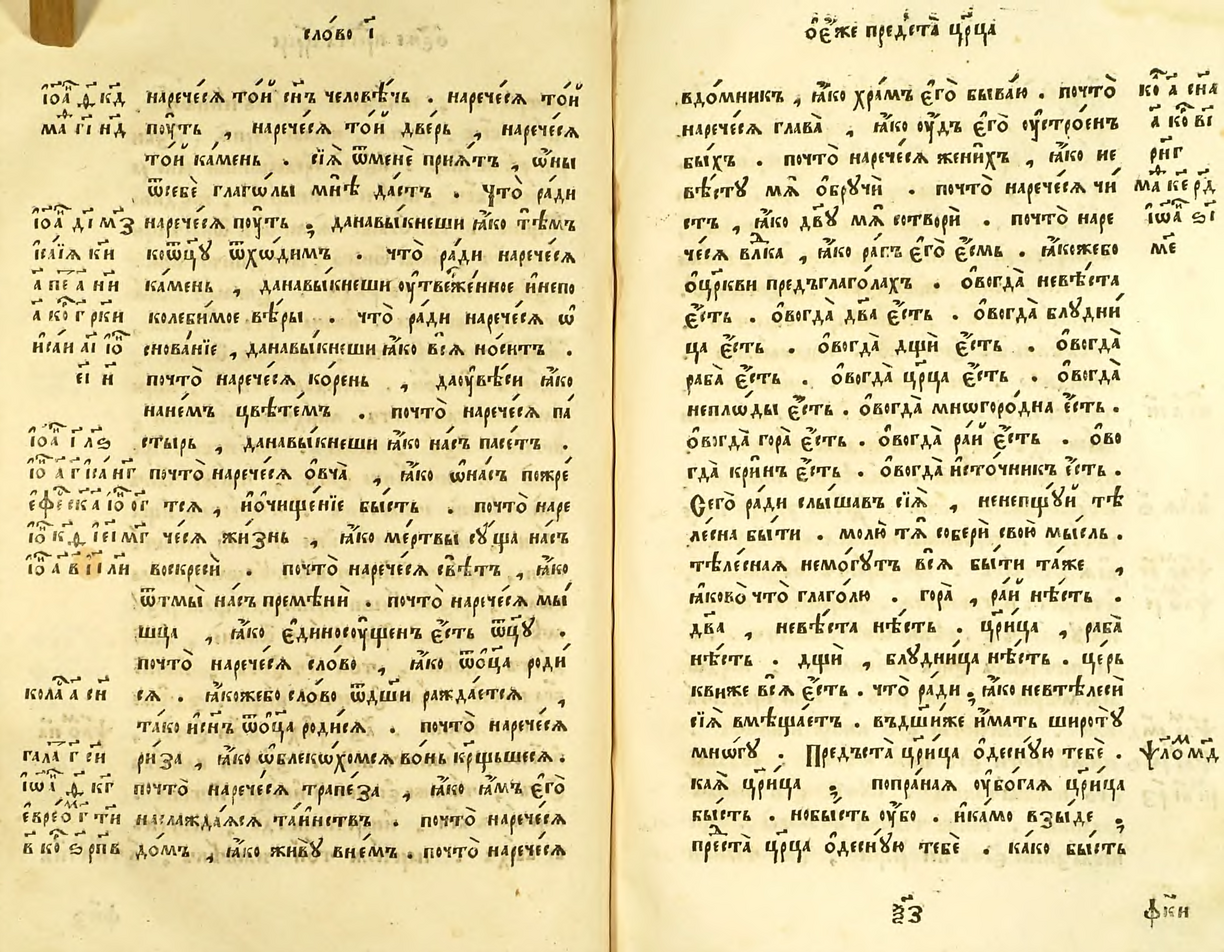 сло́во і҃
наречéсѧ то́й сн҃ъ человѣ́чь . нарече́сѧ то́й
пꙋ́ть , нарече́сѧ то́й две́рь , нарече́сѧ
то́й ка́мень . сїѧ̀ ѿменѐ прїѧ́тъ , ѻ҆́ны
ѿсебѐ глаго́лы мнѣ̀ да́стъ . что̀ ра́ди
нарече́сѧ пꙋ́ть ; данавы́кнеши ꙗ҆́ко тѣ́мъ
коѿц҃ꙋ̀ ѿхѡ́димъ . что̀ ра́ди нарече́сѧ
ка́мень , данавы́кнеши ᲂу҆твеже́нное и҆непо
колеби́мое вѣ́ры . что̀ ра́ди нарече́сѧ ѡ҆
снова́нїе , данавы́кнеши ꙗ҆́ко всѧ̀ но́ситъ .
почто̀ нарече́сѧ ко́рень , даᲂу҆вѣ́си ꙗ҆́ко
нане́мъ цвѣте́мъ . почто̀ нарече́сѧ па́
стырь , данавы́кнеши ꙗ҆́ко на́съ пасе́тъ .
почто̀ нарече́сѧ ѻ҆вча̀ , ꙗ҆́ко ѡ҆на́съ пожре́
тсѧ , и҆ѻ҆чище́нїе бы́сть . почто̀ наре
че́сѧ жи́знь , ꙗ҆́ко ме́ртвы сꙋ́ща на́съ
воскресѝ . почто̀ нарече́сѧ свѣ́тъ , ꙗ҆́ко
ѿтмы̀ на́съ премѣнѝ . почто̀ нарече́сѧ мы́
шца , ꙗ҆́ко є҆диносꙋ́щенъ є҆́сть ѿц҃ꙋ̀ .
почто̀ нарече́сѧ сло́во , ꙗ҆́ко ѿѻ҆ц҃а̀ роди́
сѧ . ꙗ҆́коже́бо сло́во ѿдш҃ѝ ражда́етсѧ ,
та́ко и҆сн҃ъ ѿѻ҆ц҃а̀ роди́сѧ . почто̀ нарече́сѧ
ри́за , ꙗ҆́ко ѡ҆блеко́хомсѧ во́нь кр҃щьшеесѧ .
почто̀ нарече́сѧ трапе́за , ꙗ҆́ко ꙗ҆́мъ є҆го̀
наслажда́ѧсѧ та́инствъ . почто̀ нарече́сѧ
до́мъ , ꙗ҆́ко живꙋ̀ вне́мъ . почто̀ нарече́сѧ
ѻ҆є҆́же предста̀ цр҃ца
вдо́мникъ , ꙗ҆́ко хра́мъ є҆го̀ быва́ю . почто̀
нарече́сѧ глава̀ , ꙗ҆́ко ᲂу҆́дъ є҆го̀ ᲂу҆стро́енъ
бы́хъ . почто̀ нарече́сѧ жени́хъ , ꙗ҆́ко не
вѣ́стꙋ мѧ̀ ѻ҆брꙋчѝ . почто̀ нарече́сѧ чи́
стъ , ꙗ҆́ко дв҃ꙋ мѧ̀ сотворѝ . почто̀ наре
че́сѧ влⷣка , ꙗ҆́ко ра́бъ є҆го̀ є҆́смь . ꙗ҆́коже́бо
ѻ҆цр҃кви предъглаго́лахъ . ѻ҆вогда̀ невѣ́ста
є҆́сть . ѻ҆вогда̀ дв҃а є҆́сть . ѻ҆вогда̀ блꙋдни́
ца є҆́сть . ѻ҆вогда̀ дщѝ є҆́сть . ѻ҆вогда̀
раба̀ є҆́сть . ѻ҆вогда̀ цр҃ца є҆́сть . ѻ҆вогда̀
непло́ды є҆́сть . ѻ҆вогда̀ многоро́дна є҆́сть .
ѻ҆вогда̀ гора̀ є҆́сть . ѻ҆вогда̀ ра́й є҆́сть . ѻ҆во
гда̀ кри́нъ є҆́сть . ѻ҆вогда̀ и҆сто́чникъ є҆́сть .
Сего̀ ра́ди слы́шавъ сїѧ̀ , ненепщꙋ́й тѣ
ле́сна бы́ти . молю́ тѧ̀ соберѝ свою̀ мы́сль .
тѣле́снаѧ немо́гꙋтъ всѧ̀ бы́ти та́же ,
ꙗ҆́ково̀ что̀ глаго́лю . гора̀ , ра́й нѣ́сть .
дв҃а , невѣ́ста нѣ́сть . цр҃и́ца , раба̀
нѣ́сть . дщѝ , блꙋдни́ца нѣ́сть . це́рь
квиже всѧ̀ є҆́сть . что̀ ра́ди ; ꙗ҆́ко невтѣлесѝ
сїѧ̀ вмѣща́етъ . въдш҃и́же и҆́мать широтꙋ̀
мно́гꙋ . Предъста̀ цр҃и́ца ѻ҆деснꙋ́ю тебѐ .
ка́ѧ цр҃и́ца ; попра́наѧ ᲂу҆бо́гаѧ цр҃и́ца
бы́сть . нобы́сть ᲂу҆́бо . и҆ка́мо взы́де ;
преⷣста̀ цр҃ца ѻ҆деснꙋ́ю тебѐ . ка́ко бы́сть
ѯ҃з